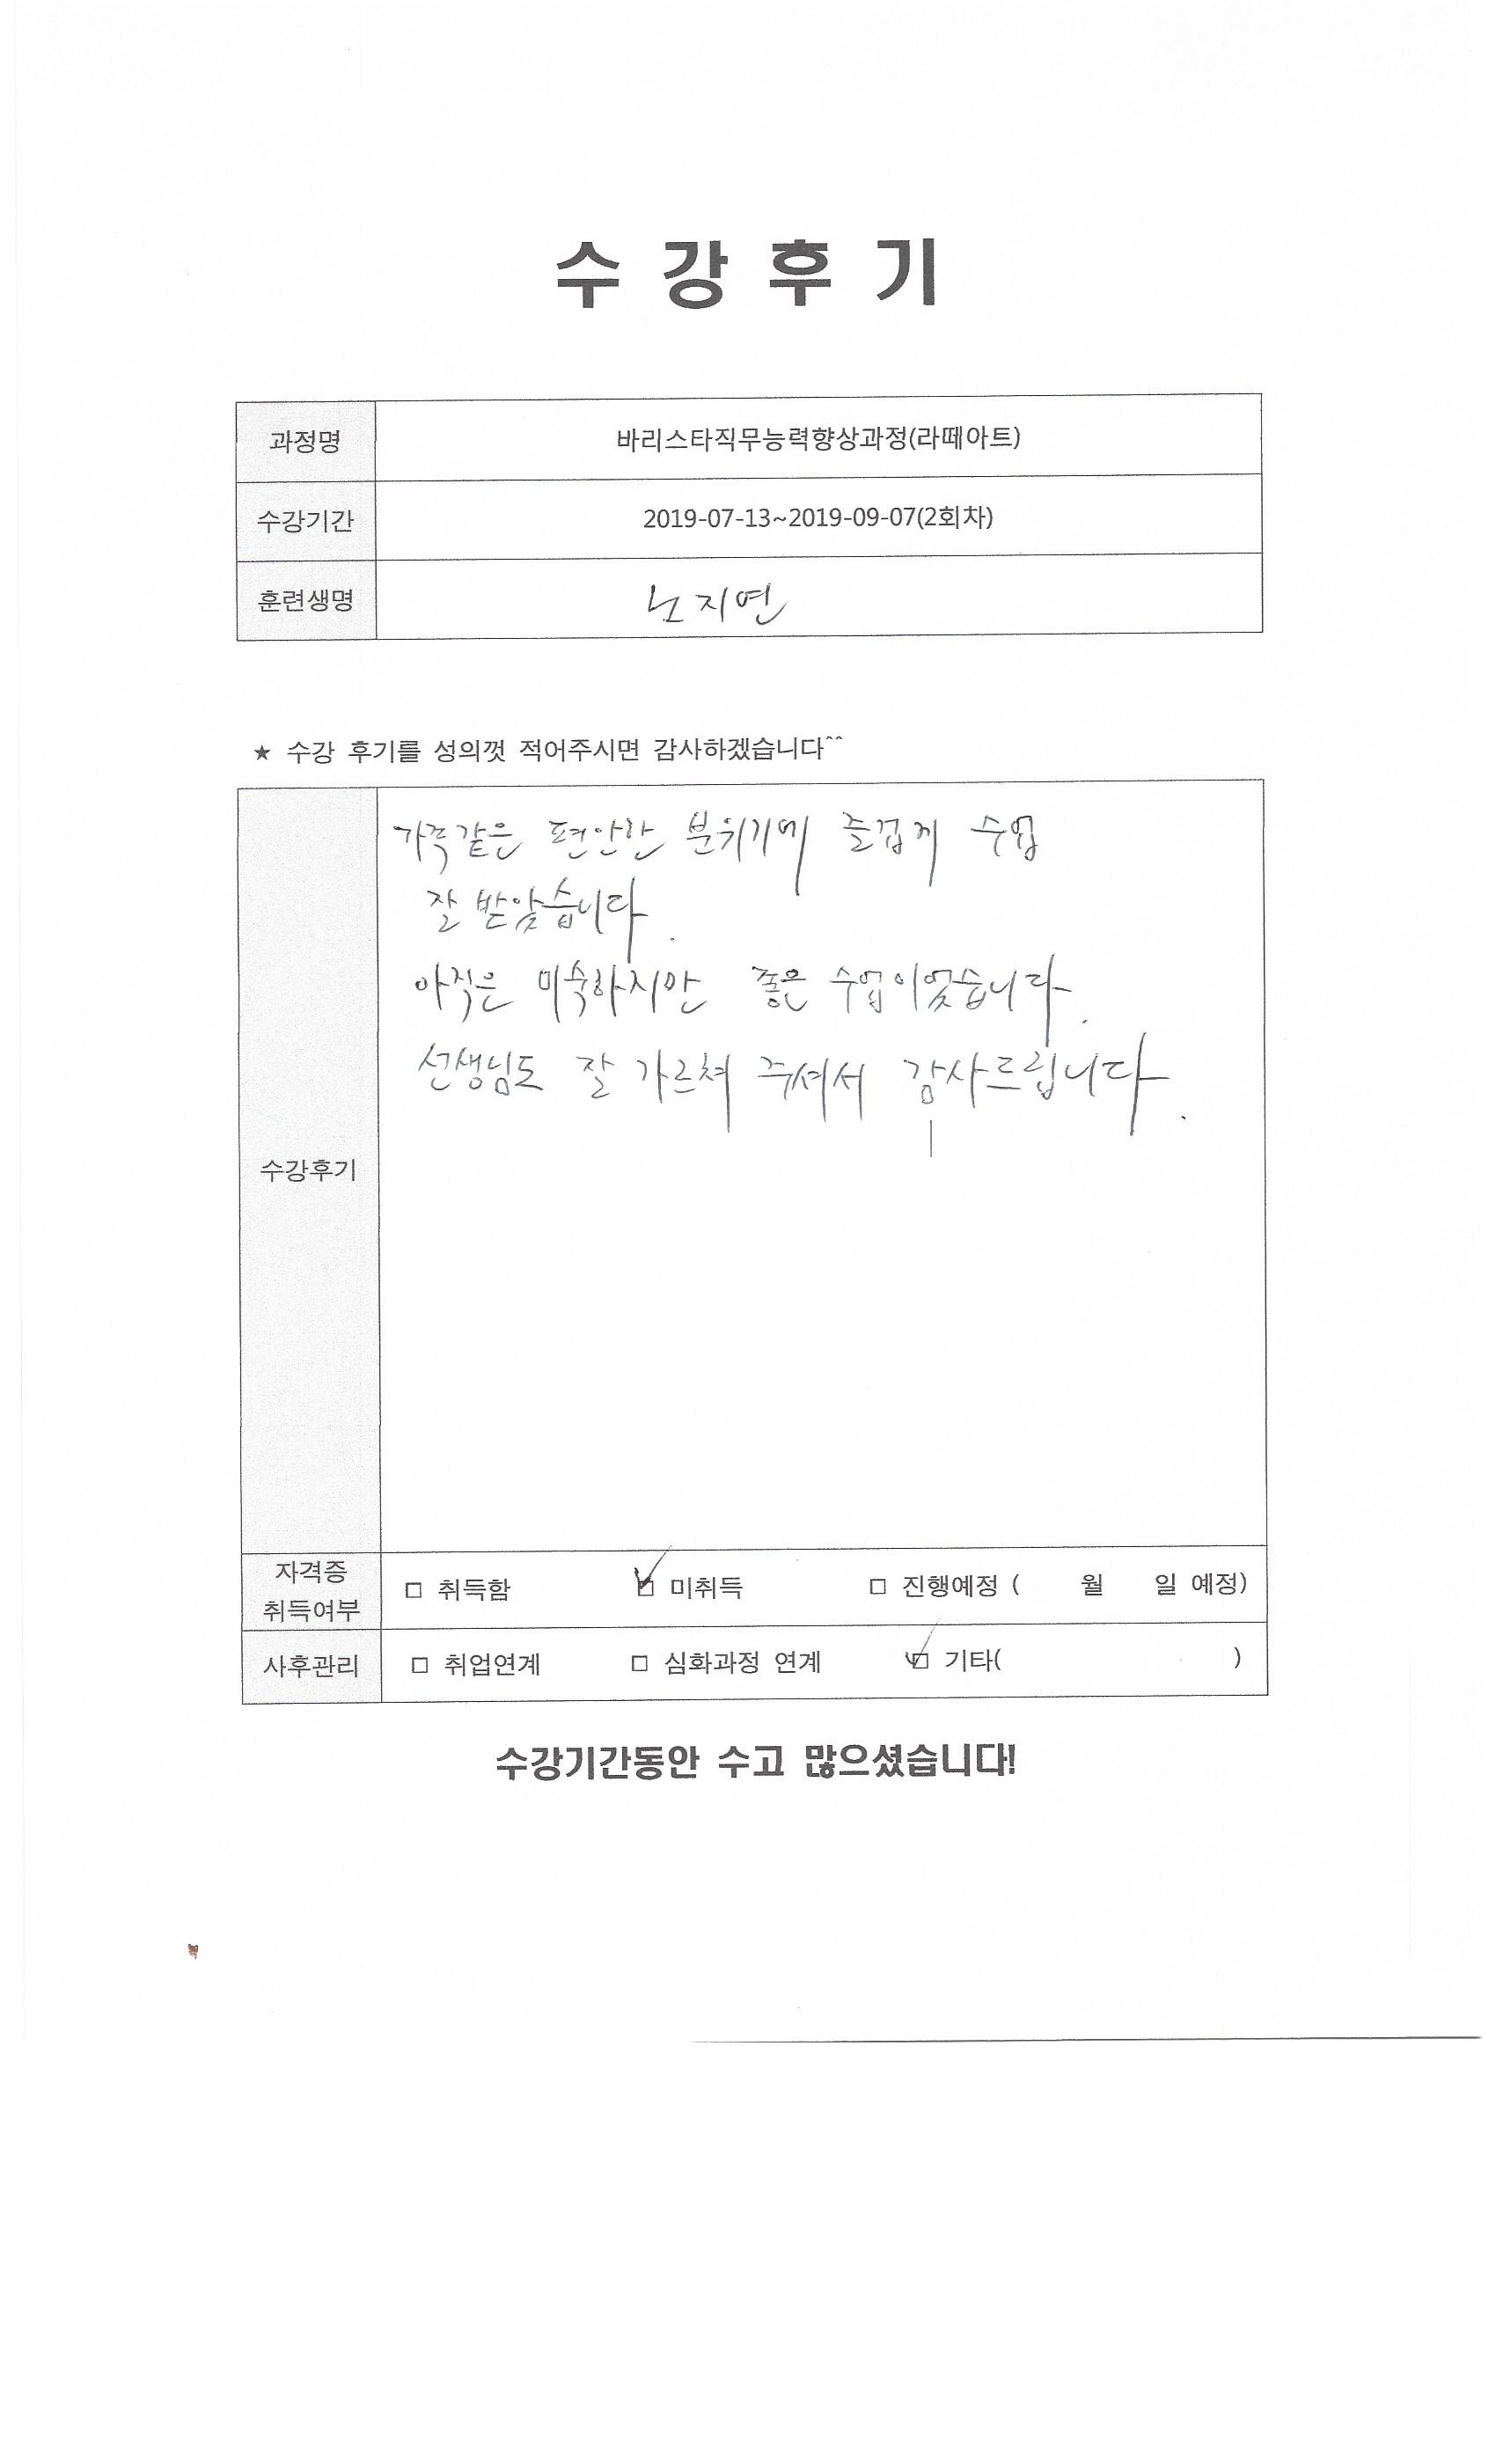 수 강 후 기
과정명 바리스타직무능력향상과정(라떼아트)
수강기간 2019-07-13~2019-09-07(2회차)
훈련생명 노지연
★ 수강 후기를 성의껏 적어주시면 감사하겠습니다^^
가족같은 편안한 분위기에 즐겁게 수업
잘 받았습니다.
아직은 미숙하지만 좋은 수업이었습니다.
선생님도 잘 가르쳐 주셔서 감사드립니다.
수강후기
자격증
취득여부
□ 취득함 ☑ 미취득 □ 진행예정 ( 월 일 예정)
사후관리 □ 취업연계 □ 심화과정 연계 ☑ 기타( )
수강기간동안 수고 많으셨습니다!